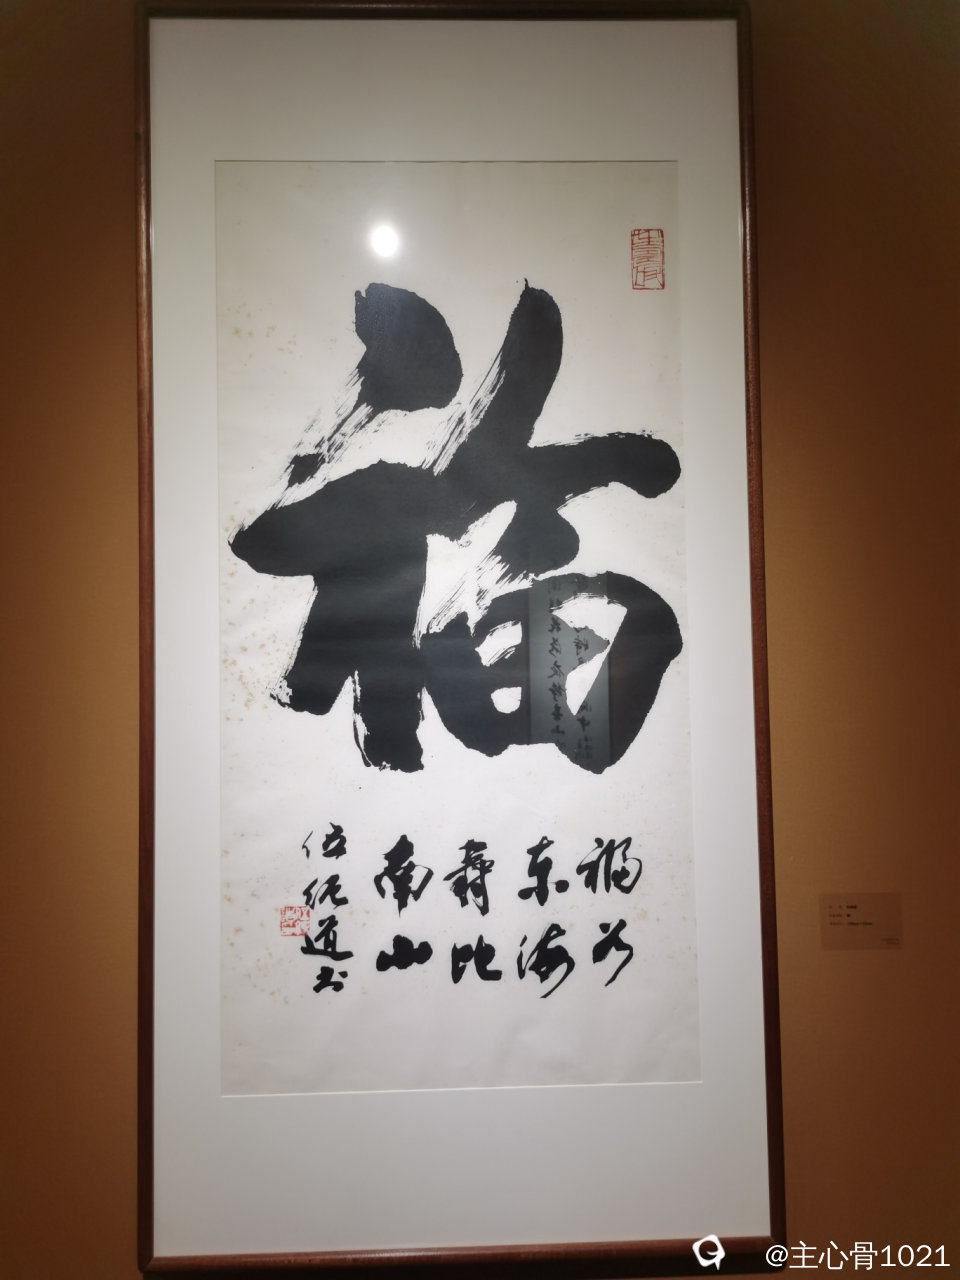 福
福如
东海
寿比
南山
伍纯道书
@主心骨1021